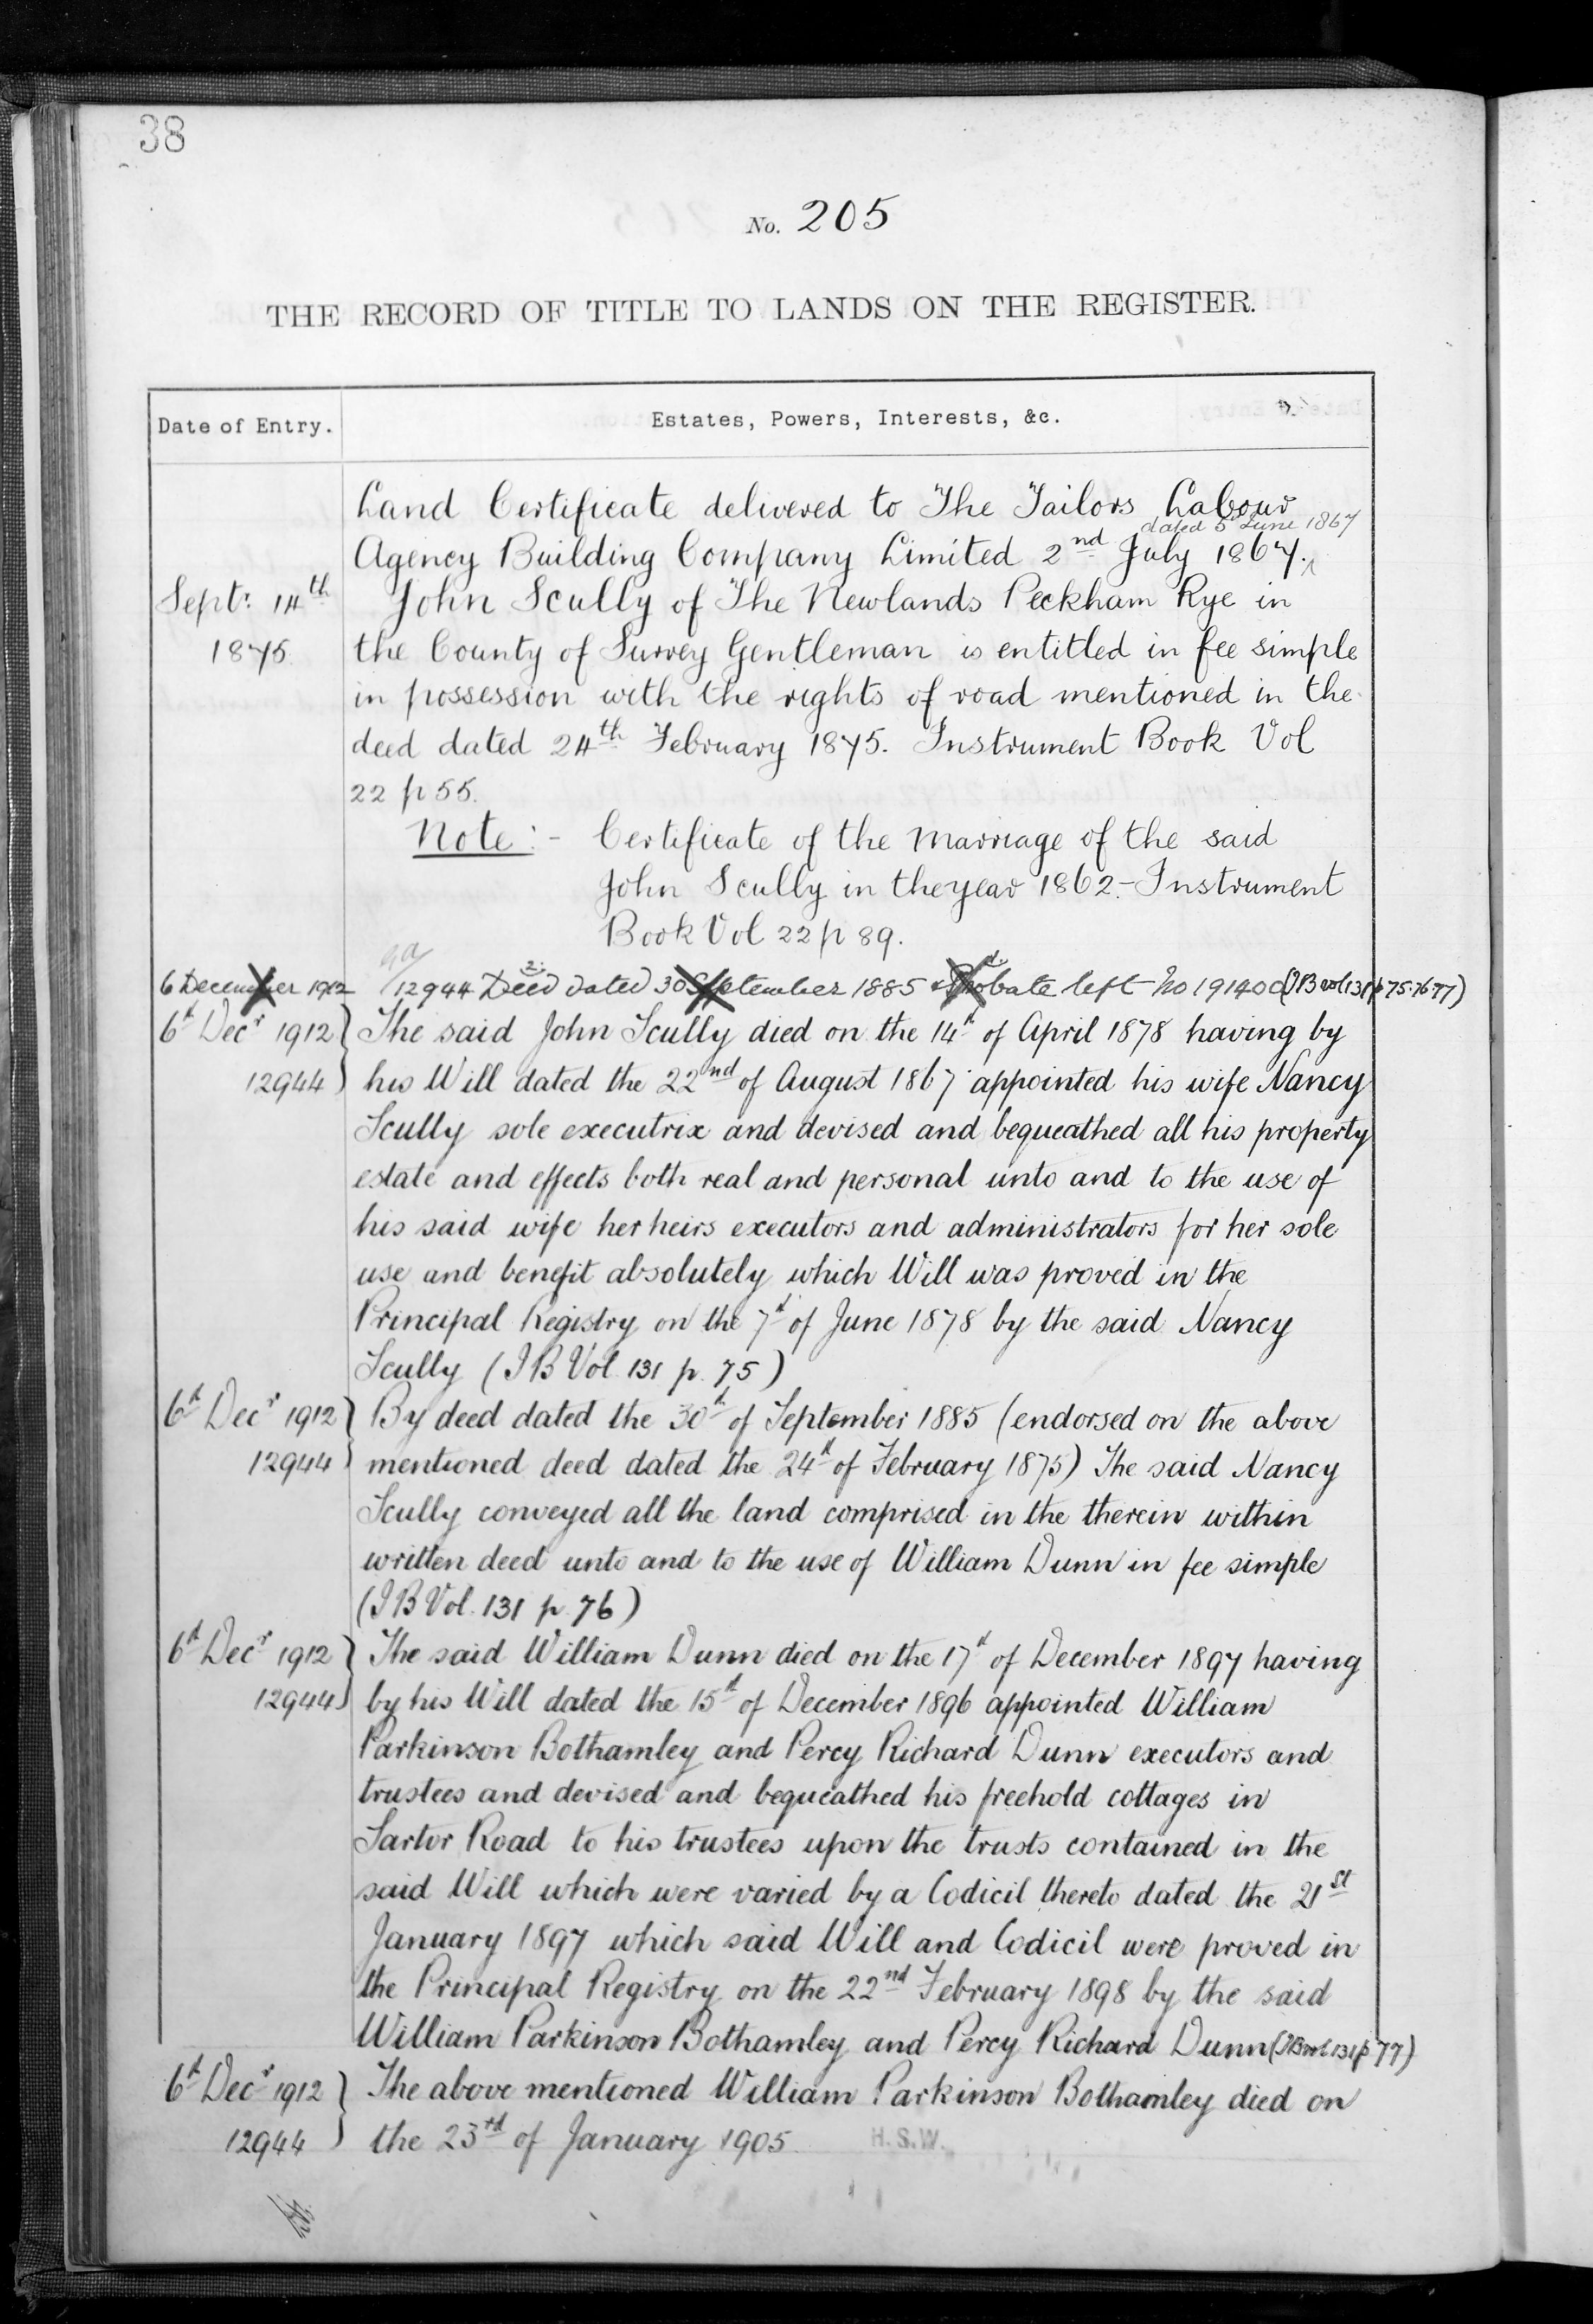 38
No. 205
THE RECORD OF TITLE TO LANDS ON THE REGISTER.
Date of Entry.
Estates, Powers, Interests, &c.
Land Certificate delivered to The Tailors Labour
dated 5 June 1867
Agency Building Company Limited 2nd July 1867.
Sept: 14th John Scully of The Newlands Peckham Rye in
1875. the County of Surrey Gentleman is entitled in fee simple
in possession with the rights of road mentioned in the
deed dated 24th February 1875. Instrument Book Vol
22 p 55.
Note:- Certificate of the Marriage of the said
John Scully in the year 1862.- Instrument
Book Vol 22 p 89.
6 December 1912 12944 Deed dated 30 September 1885 & Probate left No 19140 (IB vol 131 p 75.76.77)
6th Decr 1912 The said John Scully died on the 14th of April 1878 having by
12944 his Will dated the 22nd of August 1867 appointed his wife Nancy
Scully sole executrix and devised and bequeathed all his property
estate and effects both real and personal unto and to the use of
his said wife her heirs executors and administrators for her sole
use and benefit absolutely which Will was proved in the
Principal Registry on the 7th of June 1878 by the said Nancy
Scully (IB Vol. 131 p. 75)
6th Decr 1912 By deed dated the 30th of September 1885 (endorsed on the above
12944 mentioned deed dated the 24th of February 1875) The said Nancy
Scully conveyed all the land comprised in the therein within
written deed unto and to the use of William Dunn in fee simple
(IB Vol. 131 p. 76)
6th Decr 1912 The said William Dunn died on the 17th of December 1897 having
12944 by his Will dated the 15th of December 1896 appointed William
Parkinson Bothamley and Percy Richard Dunn executors and
trustees and devised and bequeathed his freehold cottages in
Sartor Road to his trustees upon the trusts contained in the
said Will which were varied by a Codicil thereto dated the 21st
January 1897 which said Will and Codicil were proved in
the Principal Registry on the 22nd February 1898 by the said
William Parkinson Bothamley and Percy Richard Dunn (IB vol. 131 p 77)
6th Decr 1912 The above mentioned William Parkinson Bothamley died on
12944 the 23rd of January 1905 H.S.W.